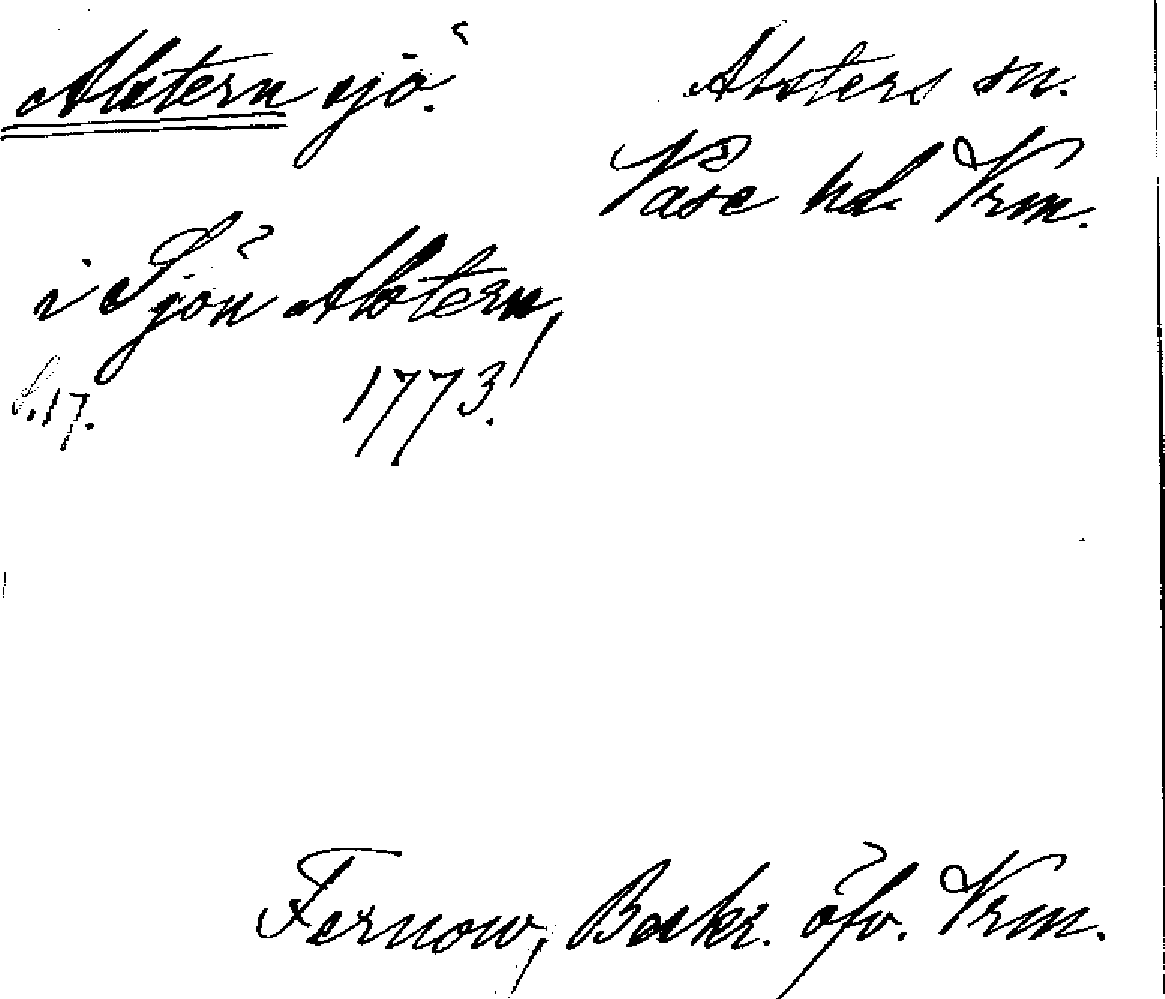 Alstern sjö.
Alsters sn.
Väse hd. Vrm.
i Sjön Alstern,
S. 17. 1773!
Fernow, Beskr. öfv. Vrm.